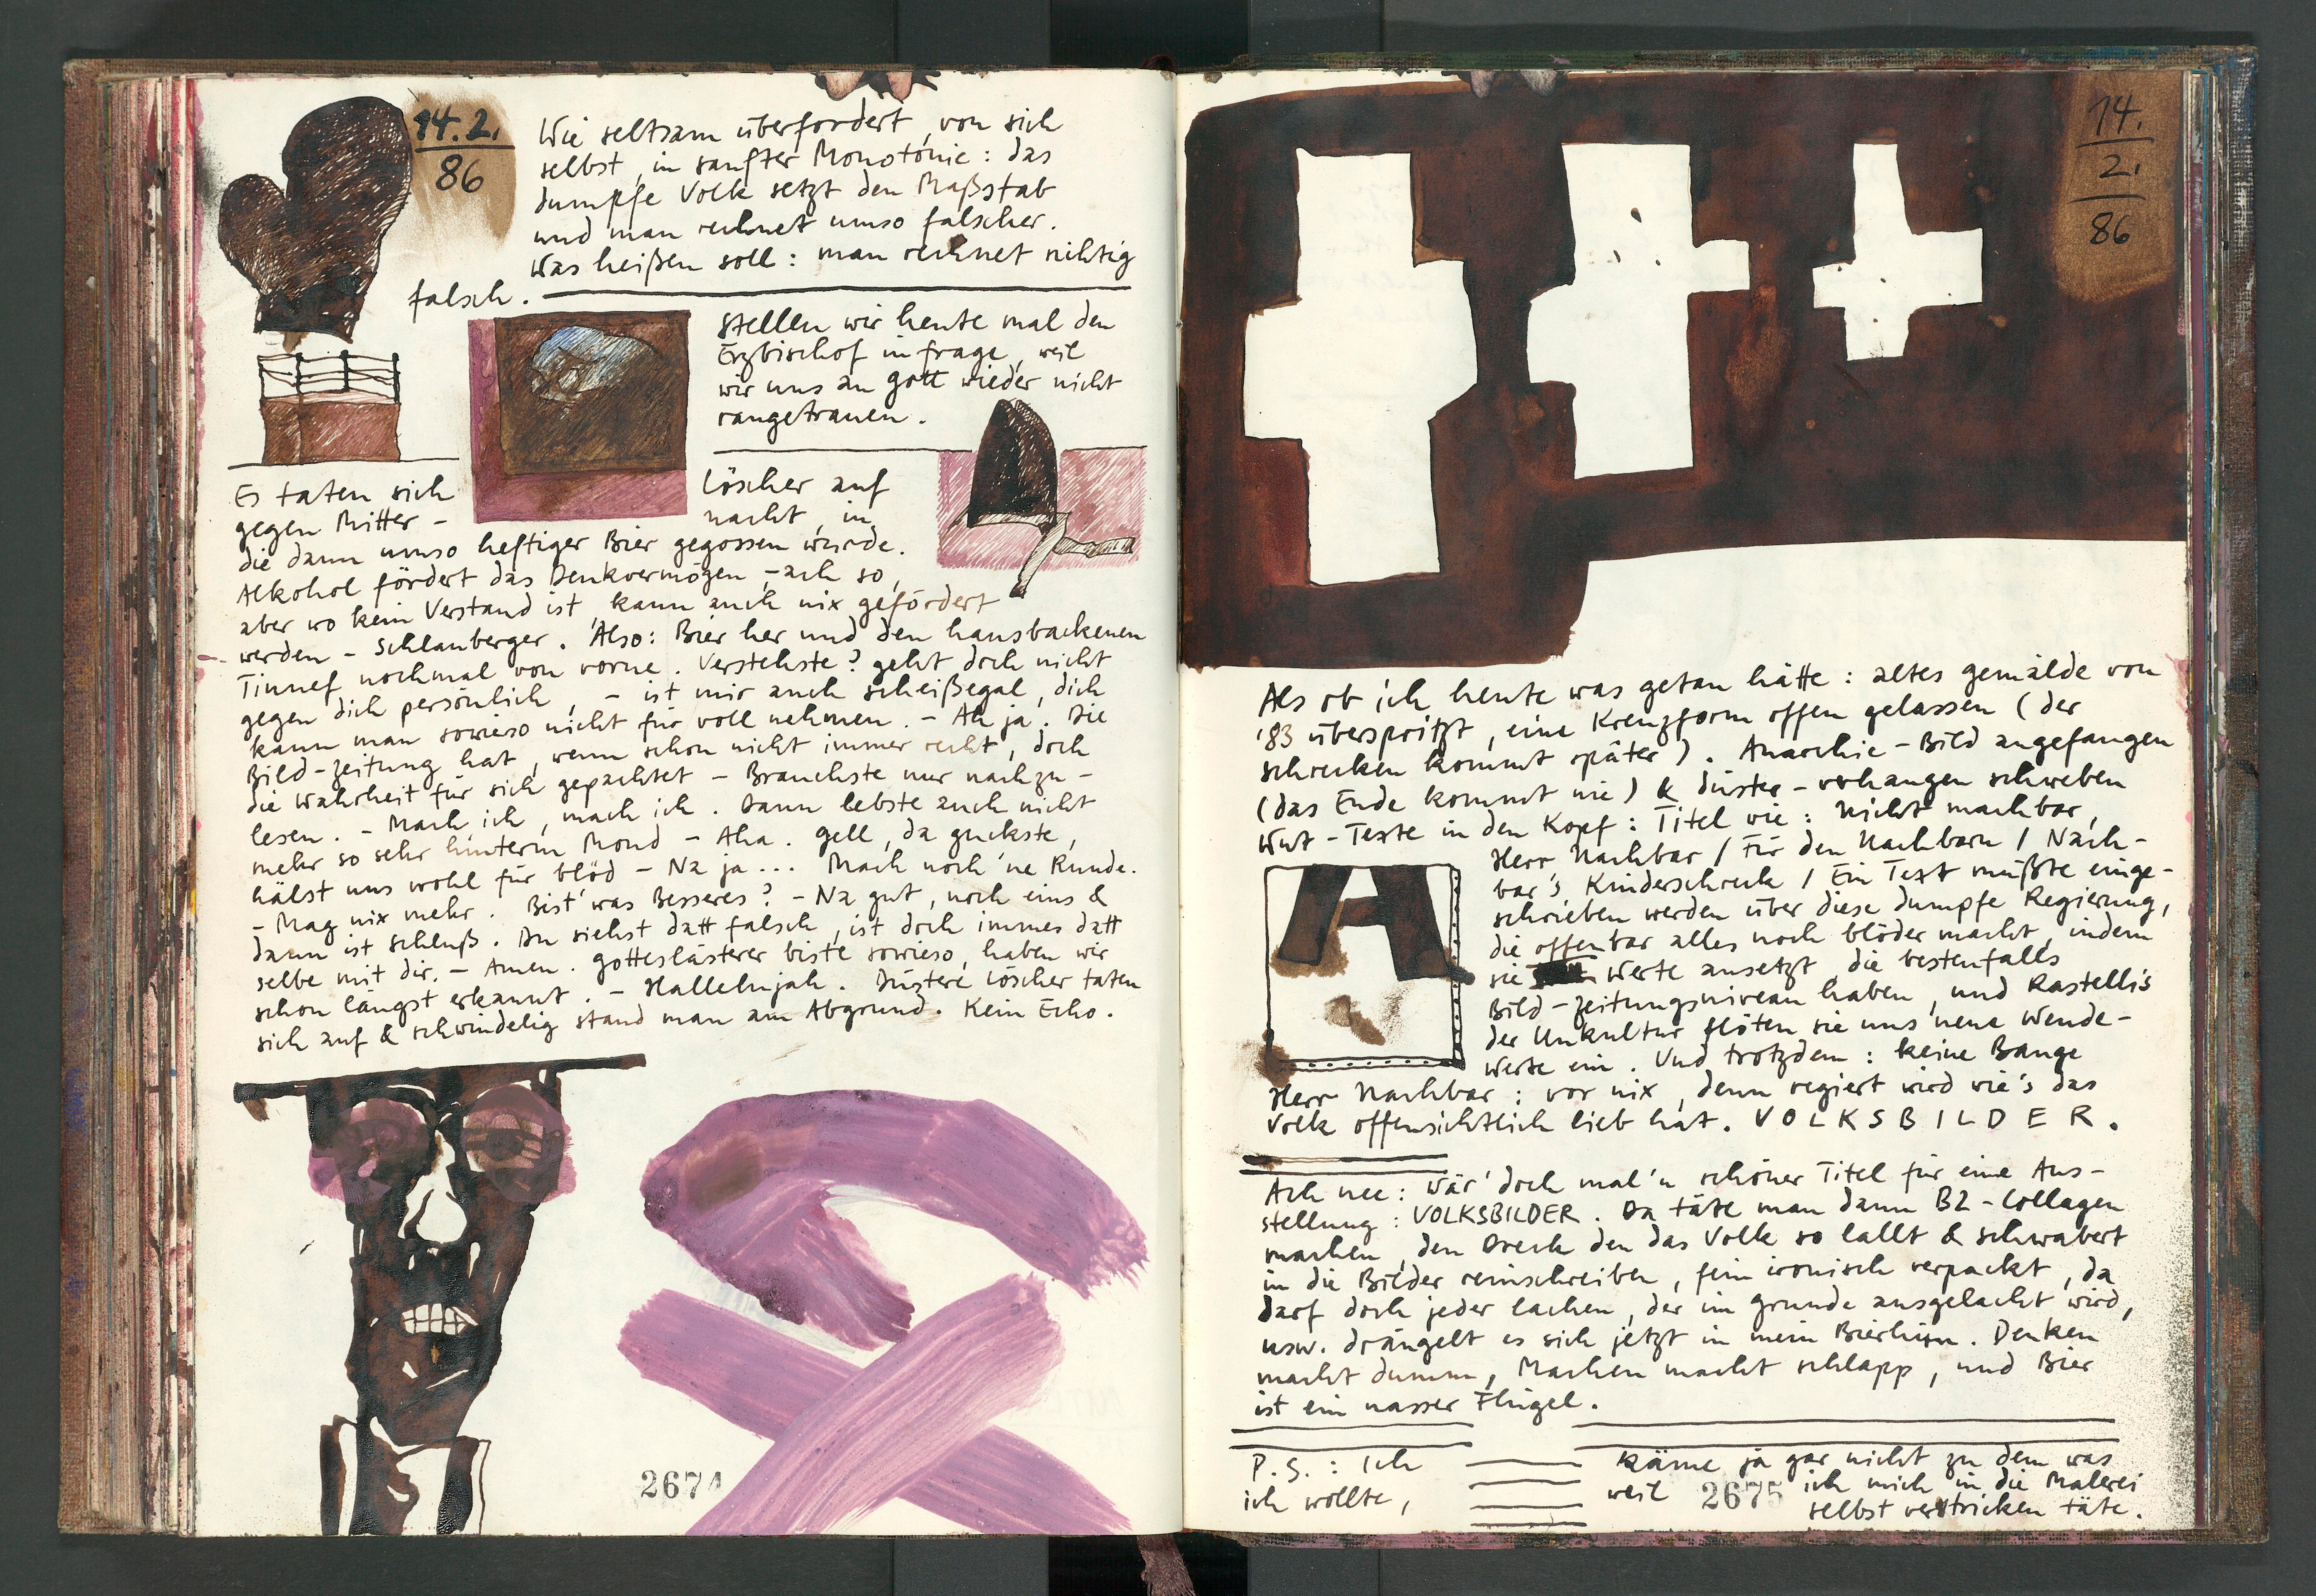 14.2.
86
Wie seltsam überfordert, von sich
selbst, in sanfter Monotonie: das
dumpfe Volk setzt den Maßstab
und man rechnet umso falscher.
Was heißen soll: man rechnet richtig
falsch.
Stellen wir heute mal den
Erzbischof in frage, weil
wir uns an gott wieder nicht
rangetrauen.
Es taten sich Löscher auf
gegen Mitter- nacht, in
die dann umso heftiger Bier gegossen wurde.
Alkohol fördert das Denkvermögen, - ach so,
aber wo kein Verstand ist, kann auch nix gefördert
werden - Schlauberger. Also: Bier her und den hausbackenen
Tinnef nochmal von vorne. Verstehste? geht doch nicht
gegen dich persönlich, - ist mir auch scheißegal, dich
kann man sowieso nicht für voll nehmen. - Ah ja. Die
Bild-Zeitung hat, wenn schon nicht immer recht, doch
die Wahrheit für sich gepachtet - Brauchste nur nachzu-
lesen. - Mach ich, mach ich. Dann lebste auch nicht
mehr so sehr hinterm Mond - Aha. gell, da guckste,
hälst uns wohl für blöd - Na ja... Mach noch 'ne Runde.
- Mag nix mehr. Bist was Besseres? - Na gut, noch eins &
dann ist Schluß. Du siehst datt falsch, ist doch immer datt
selbe mit dir. - Amen. gotteslästerer biste sowieso, haben wir
schon längst erkannt. - Hallelujah. Düstere Löscher taten
sich auf & schwindelig stand man am Abgrund. Kein Echo.
2674
14.
2.
86
Als ob ich heute was getan hätte: altes gemälde von
'83 überspritzt, eine Kreuzform offen gelassen (der
schrecken kommt später). Anarchie-Bild angefangen
(das Ende kommt nie) & düster-verhangen schweben
Wut-Texte in den Kopf: Titel wie: Nicht machbar,
Herr Nachbar / Für den Nachbarn / Nach-
bar's Kinderschreck / Ein Text müßte einge-
schrieben werden über diese dumpfe Regierung,
die offenbar alles noch blöder macht, indem
sie Werte ansetzt, die bestenfalls
Bild-Zeitungsniveau haben, und Rastelli's
der Unkultur flöten sie uns neue Wende-
werte ein. Und trotzdem: keine Bange
Herr Nachbar: vor nix, denn regiert wird wie's das
Volk offensichtlich lieb hat. VOLKSBILDER.
A
Ach nee: wär' doch mal'n schöner Titel für eine Aus-
stellung: VOLKSBILDER. Da täte man dann BZ-Collagen
machen, den Dreck den das Volk so lallt & schwabert
in die Bilder reinschreiben, fein ironisch verpackt, da
darf doch jeder lachen, der im grunde ausgelacht wird,
usw. drängelt es sich jetzt in mein Bierhirn. Denken
macht dumm, Machen macht schlapp, und Bier
ist ein nasser Flügel.
P.S.: Ich käme ja gar nicht zu dem was
ich wollte, weil ich mich in die Malerei
selbst verstricken täte.
2675